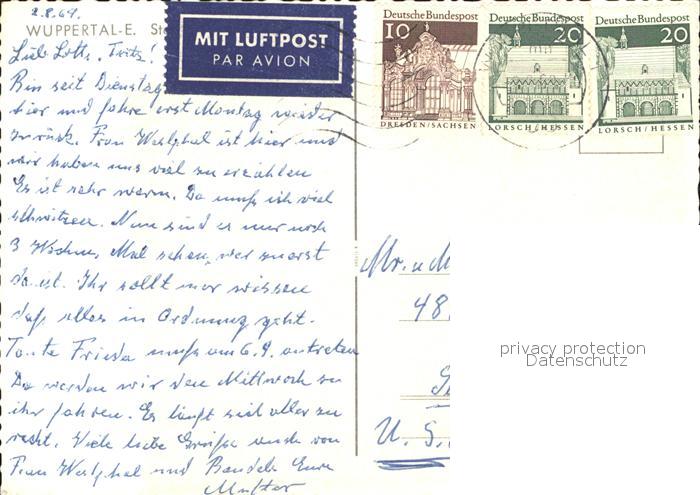 2.8.69.
WUPPERTAL-E. St
MIT LUFTPOST
PAR AVION
Deutsche Bundespost
10
DRESDEN/SACHSEN
Deutsche Bundespost
20
LORSCH/HESSEN
Deutsche Bundespost
20
LORSCH/HESSEN
Bin seit Dienstag
hier und fahre erst Montag wieder
zurück. Frau Westphal ist hier und
wir haben uns viel zu erzählen
Es ist sehr warm. Da muß ich viel
schwitzen. Nun sind es nur noch
3 Wochen. Mal sehen, wer zuerst
da ist. Ihr sollt nur wissen
daß alles in Ordnung geht.
Tante Frieda muß am 6.9. antreten
Da werden wir den Mittwoch zu
ihr fahren. Es läuft sich alles zu
recht. Viele liebe Grüße auch von
Frau Westphal und Eure
Mutter
Mr. u M
48
U. S.
privacy protection
Datenschutz